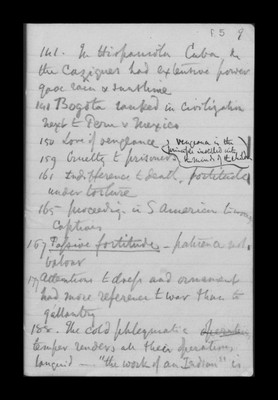 15 9
141. In Hispaniola Cuba &
the Caziques had extensive power
gave rain & sunshine
141 Bogota ranked in civilization
next to Peru & Mexico
150 Love of vengeance
vengeance is the
principle instilled into
the minds of the child
159 Cruelty to prisoners
161 Indifference to death, fortitude
under torture
165 proceeding in S American towns
Captives
167 Passive fortitude - patience not
valour
Attentions to dress and ornament
had more reference to war than to
gallantry
The cold phlegmatic
temper renders all their operations
languid — "the work of an Indian" is